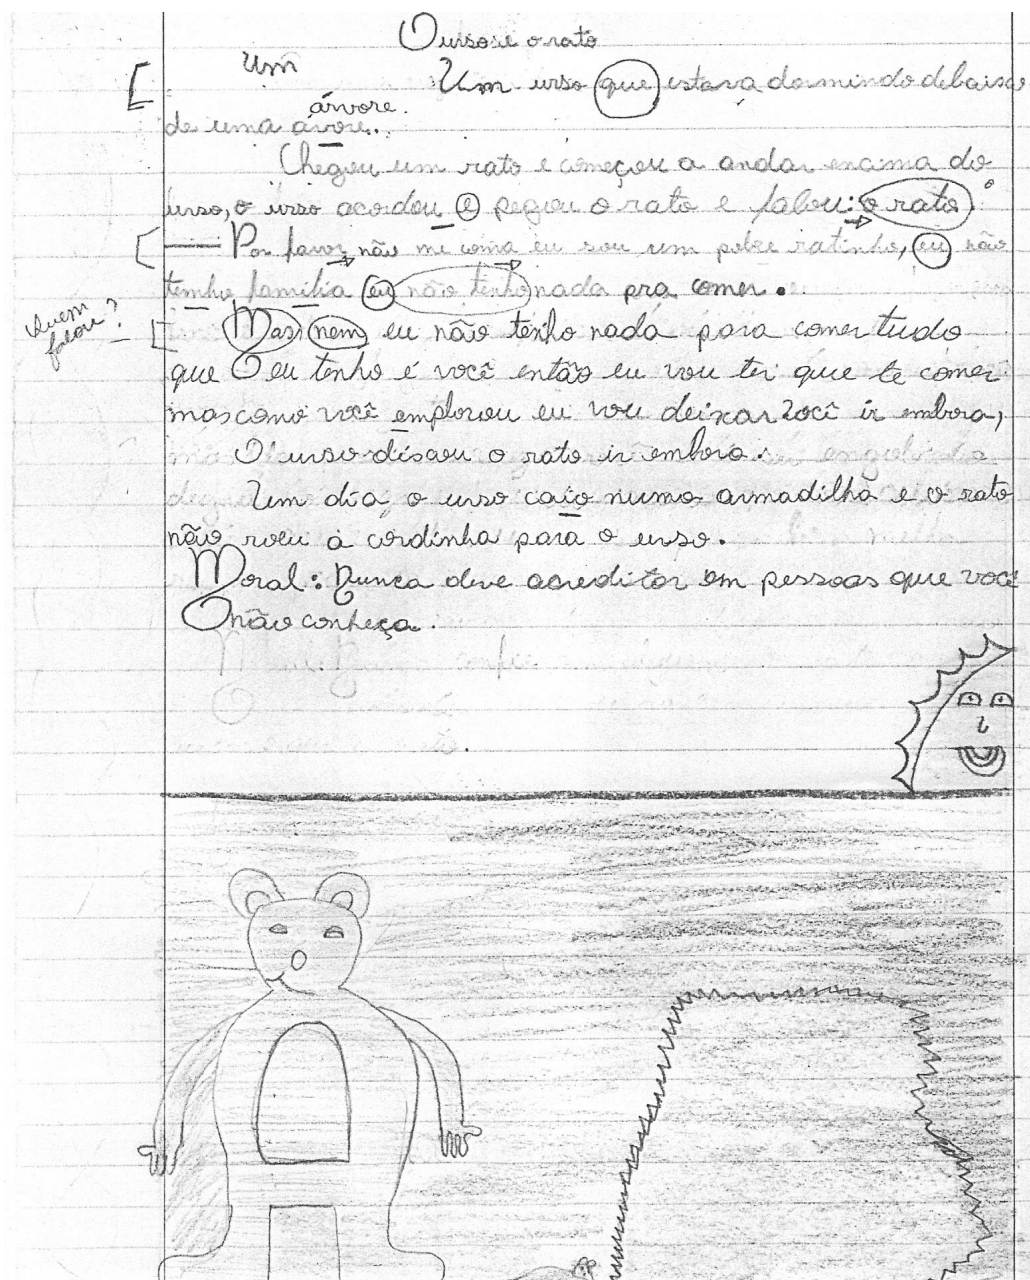 O urso e o rato
Um
Um urso que estava dormindo debaixo
árvore.
de uma ávore..
Chegou um rato e começou a andar encima do
urso, o urso acordou e pegou o rato e falou: o rato
— Por favor, não me coma eu sou um pobre ratinho, eu não
tenho família eu não tenho nada pra comer.
Quem
falou?
Mas nem eu não tenho nada para comer tudo
que eu tenho é você então eu vou ter que te comer
mas como você emplorou eu vou deixar você ir embora,
O urso disaou o rato ir embora.
Um dia o urso caio numa armadilha e o rato
não roeu a cordinha para o urso.
Moral: Nunca deve acreditar em pessoas que você
não conheça.